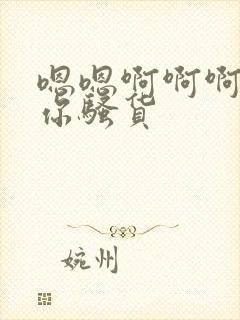 嗯嗯啊啊啊
你骚货
婉州